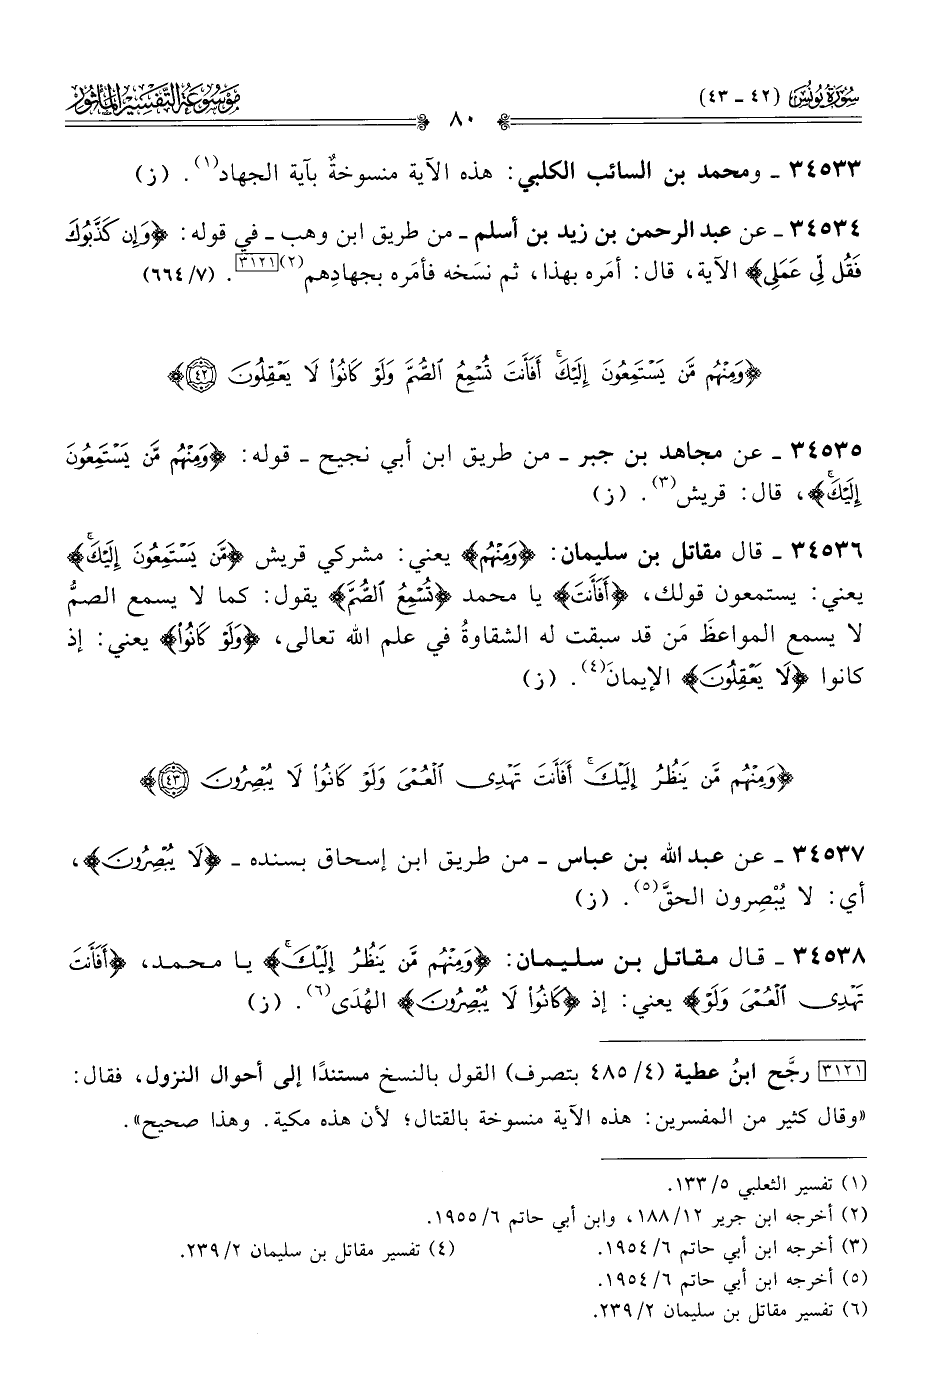 سورة يونس (٤٢ - ٤٣)
٨٠
موسوعة التفسير المأثور
٣٤٥٣٣ - ومحمد بن السائب الكلبي: هذه الآية منسوخةٌ بآية الجهاد(١). (ز)
٣٤٥٣٤ - عن عبد الرحمن بن زيد بن أسلم - من طريق ابن وهب - في قوله: ﴿وَإِن كَذَّبُوكَ
فَقُل لِّى عَمَلِى﴾ الآية، قال: أمَره بهذا، ثم نسَخه فأمَره بجهادِهم(٢)[٣١٢١]. (٧/ ٦٦٤)
﴿وَمِنْهُم مَّن يَسْتَمِعُونَ إِلَيْكَۚ أَفَأَنتَ تُسْمِعُ ٱلصُّمَّ وَلَوْ كَانُوا۟ لَا يَعْقِلُونَ ٤٢﴾
٣٤٥٣٥ - عن مجاهد بن جبر - من طريق ابن أبي نجيح - قوله: ﴿وَمِنْهُم مَّن يَسْتَمِعُونَ
إِلَيْكَۚ﴾، قال: قريش(٣). (ز)
٣٤٥٣٦ - قال مقاتل بن سليمان: ﴿وَمِنْهُم﴾ يعني: مشركي قريش ﴿مَّن يَسْتَمِعُونَ إِلَيْكَۚ﴾
يعني: يستمعون قولك، ﴿أَفَأَنتَ﴾ يا محمد ﴿تُسْمِعُ ٱلصُّمَّ﴾ يقول: كما لا يسمع الصمُّ
لا يسمع المواعظَ مَن قد سبقت له الشقاوةُ في علم الله تعالى، ﴿وَلَوْ كَانُوا۟﴾ يعني: إذ
كانوا ﴿لَا يَعْقِلُونَ﴾ الإيمانَ(٤). (ز)
﴿وَمِنْهُم مَّن يَنظُرُ إِلَيْكَۚ أَفَأَنتَ تَهْدِى ٱلْعُمْىَ وَلَوْ كَانُوا۟ لَا يُبْصِرُونَ ٤٣﴾
٣٤٥٣٧ - عن عبد الله بن عباس - من طريق ابن إسحاق بسنده - ﴿لَا يُبْصِرُونَ﴾،
أي: لا يُبْصِرون الحقَّ(٥). (ز)
٣٤٥٣٨ - قال مقاتل بن سليمان: ﴿وَمِنْهُم مَّن يَنظُرُ إِلَيْكَۚ﴾ يا محمد، ﴿أَفَأَنتَ
تَهْدِى ٱلْعُمْىَ وَلَوْ﴾ يعني: إذ ﴿كَانُوا۟ لَا يُبْصِرُونَ﴾ الهُدَى(٦). (ز)
[٣١٢١] رجَّح ابنُ عطية (٤/ ٤٨٥ بتصرف) القول بالنسخ مستندًا إلى أحوال النزول، فقال:
«وقال كثير من المفسرين: هذه الآية منسوخة بالقتال؛ لأن هذه مكية. وهذا صحيح».
(١) تفسير الثعلبي ٥/ ١٣٣.
(٢) أخرجه ابن جرير ١٢/ ١٨٨، وابن أبي حاتم ٦/ ١٩٥٥.
(٣) أخرجه ابن أبي حاتم ٦/ ١٩٥٤. (٤) تفسير مقاتل بن سليمان ٢/ ٢٣٩.
(٥) أخرجه ابن أبي حاتم ٦/ ١٩٥٤.
(٦) تفسير مقاتل بن سليمان ٢/ ٢٣٩.